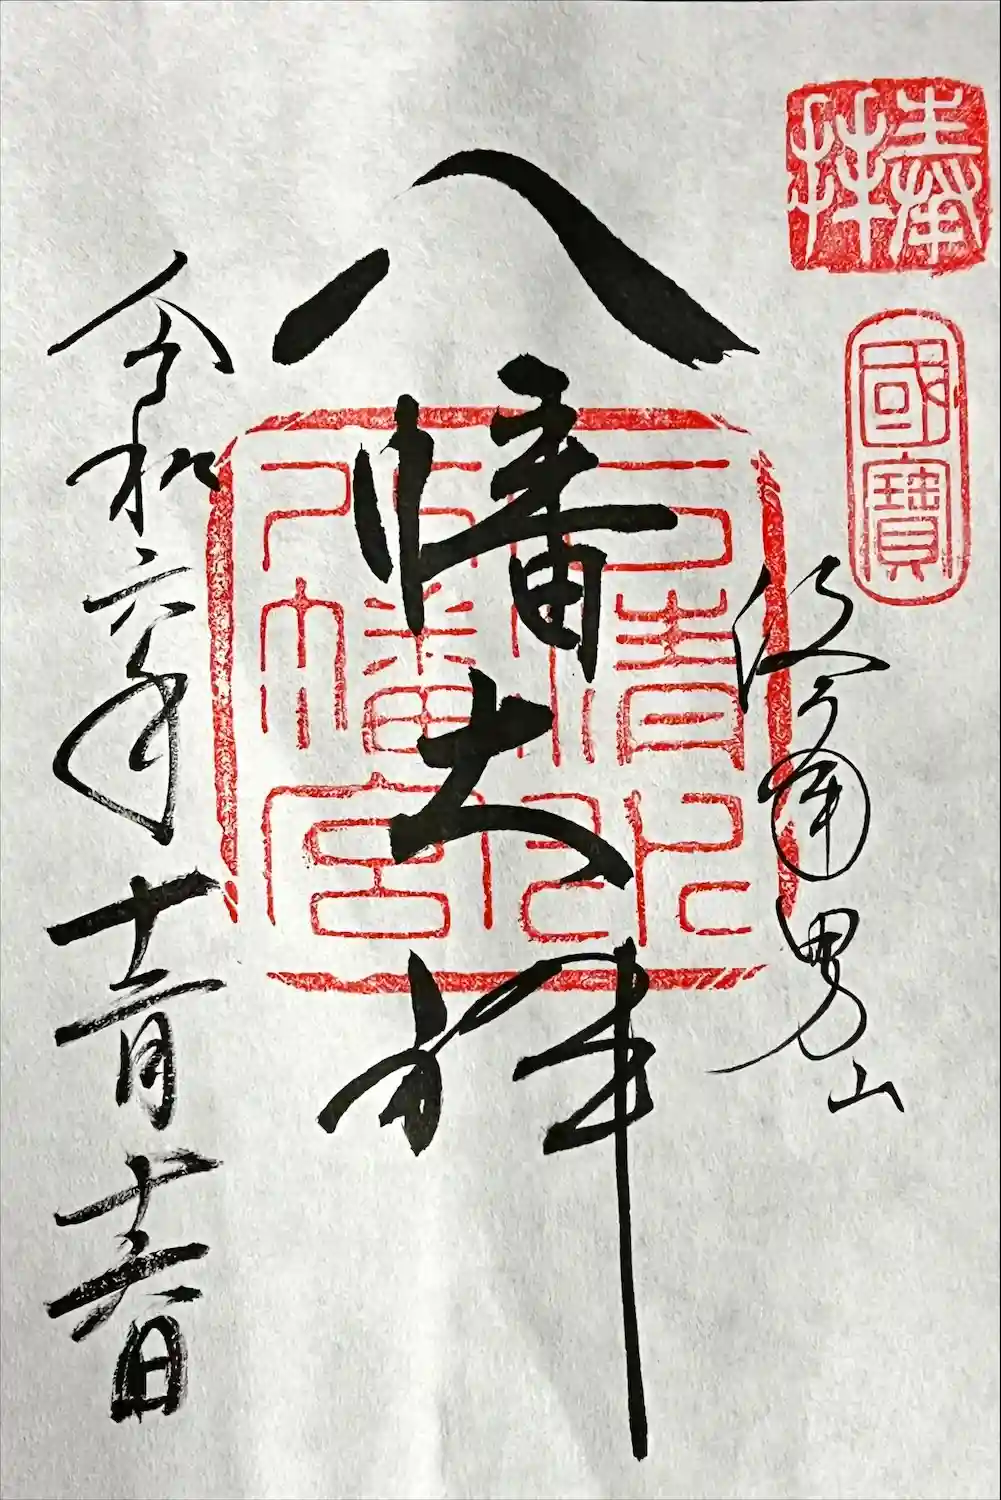 奉拝
國寶
男山
八幡大神
石清水
八幡宮
令和六年十二月十六日